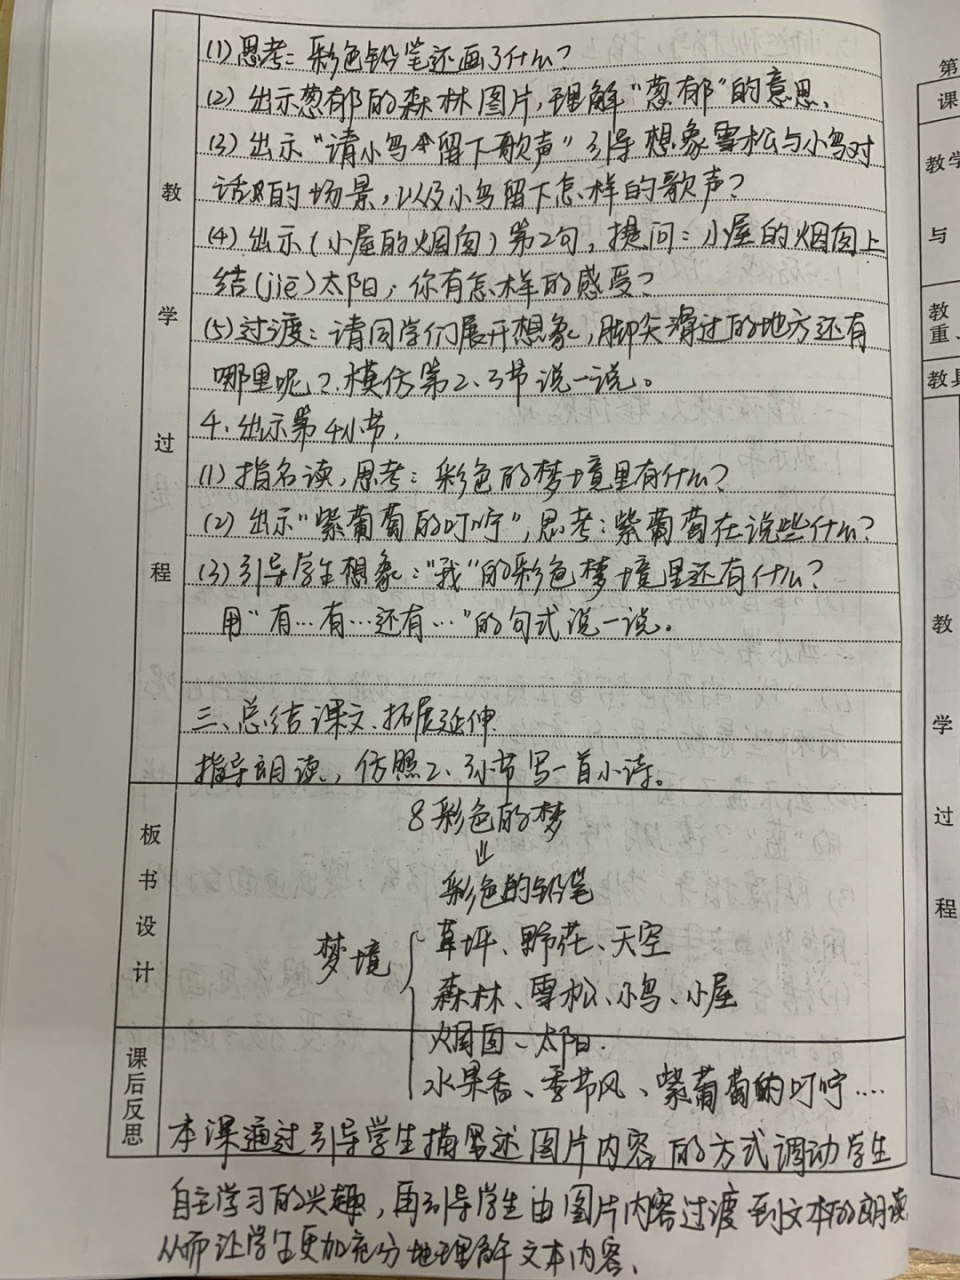 (1)思考：彩色铅笔还画了什么？
(2)出示葱郁的森林图片，理解“葱郁”的意思、
(3)出示“请小鸟留下歌声”引导想象雪松与小鸟对
话的场景，以及小鸟留下怎样的歌声？
(4)出示(小屋的烟囱)第2句，提问：小屋的烟囱上
结(jiē)太阳，你有怎样的感受？
(5)过渡：请同学们展开想象，脚尖滑过的地方还有
哪里呢？模仿第2、3节说一说。
4.出示第4小节、
(1)指名读，思考：彩色的梦境里有什么？
(2)出示“紫葡萄的叮咛”，思考：紫葡萄在说些什么？
(3)引导学生想象：“我”的彩色梦境里还有什么？
用“有…有…还有…”的句式说一说。
三、总结课文、拓展延伸
指导朗读，仿照2、3小节写一首小诗。
教学过程
板书设计
8 彩色的梦
⇓
彩色的铅笔
梦境
草坪、野花、天空
森林、雪松、小鸟、小屋
烟囱、太阳.
水果香、季节风、紫葡萄的叮咛….
课后反思
本课通过引导学生描述图片内容的方式调动学生
自主学习的兴趣，再引导学生由图片内容过渡到文本的朗读
从而让学生更加充分地理解文本内容、
第
课
教学
与
教
重、
教具
教
学
过
程